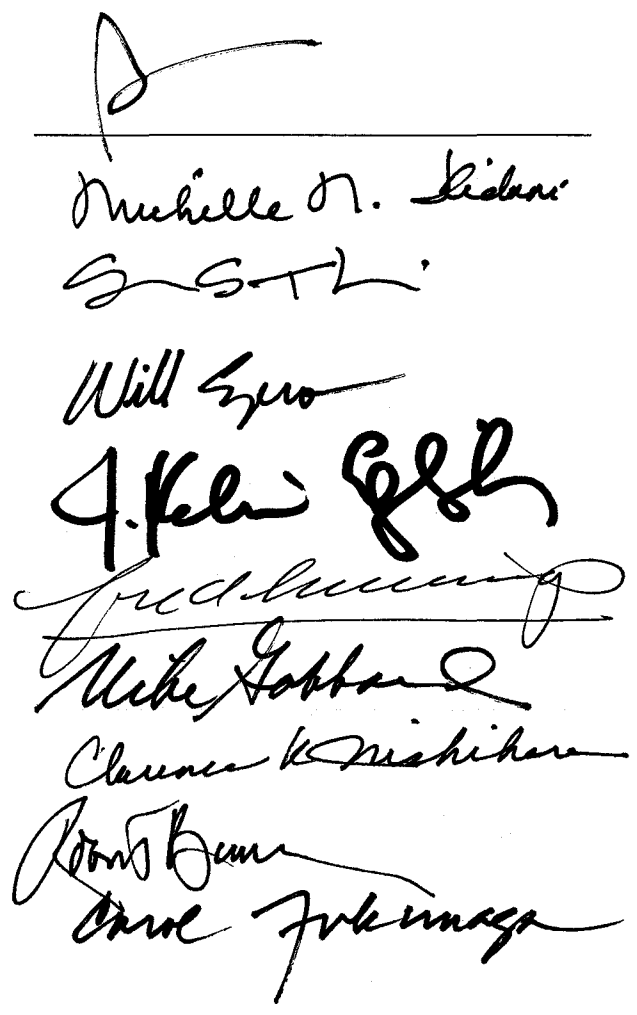 Michelle N. Kidani
Will Espero
J. Kalani English
Mike Gabbard
Clarence K Nishihara
Robert Bunda
Carol Fukunaga